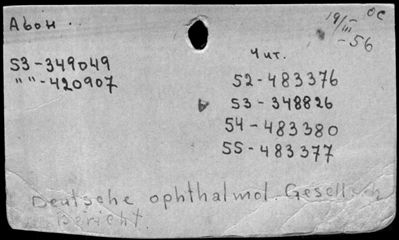 Абон..
19/III-56 ОС
53-349049
" "-420907
Чит.
52-483376
53-348826
54-483380
55-483377
Deutsche ophthalmol. Gesellsch
Bericht.